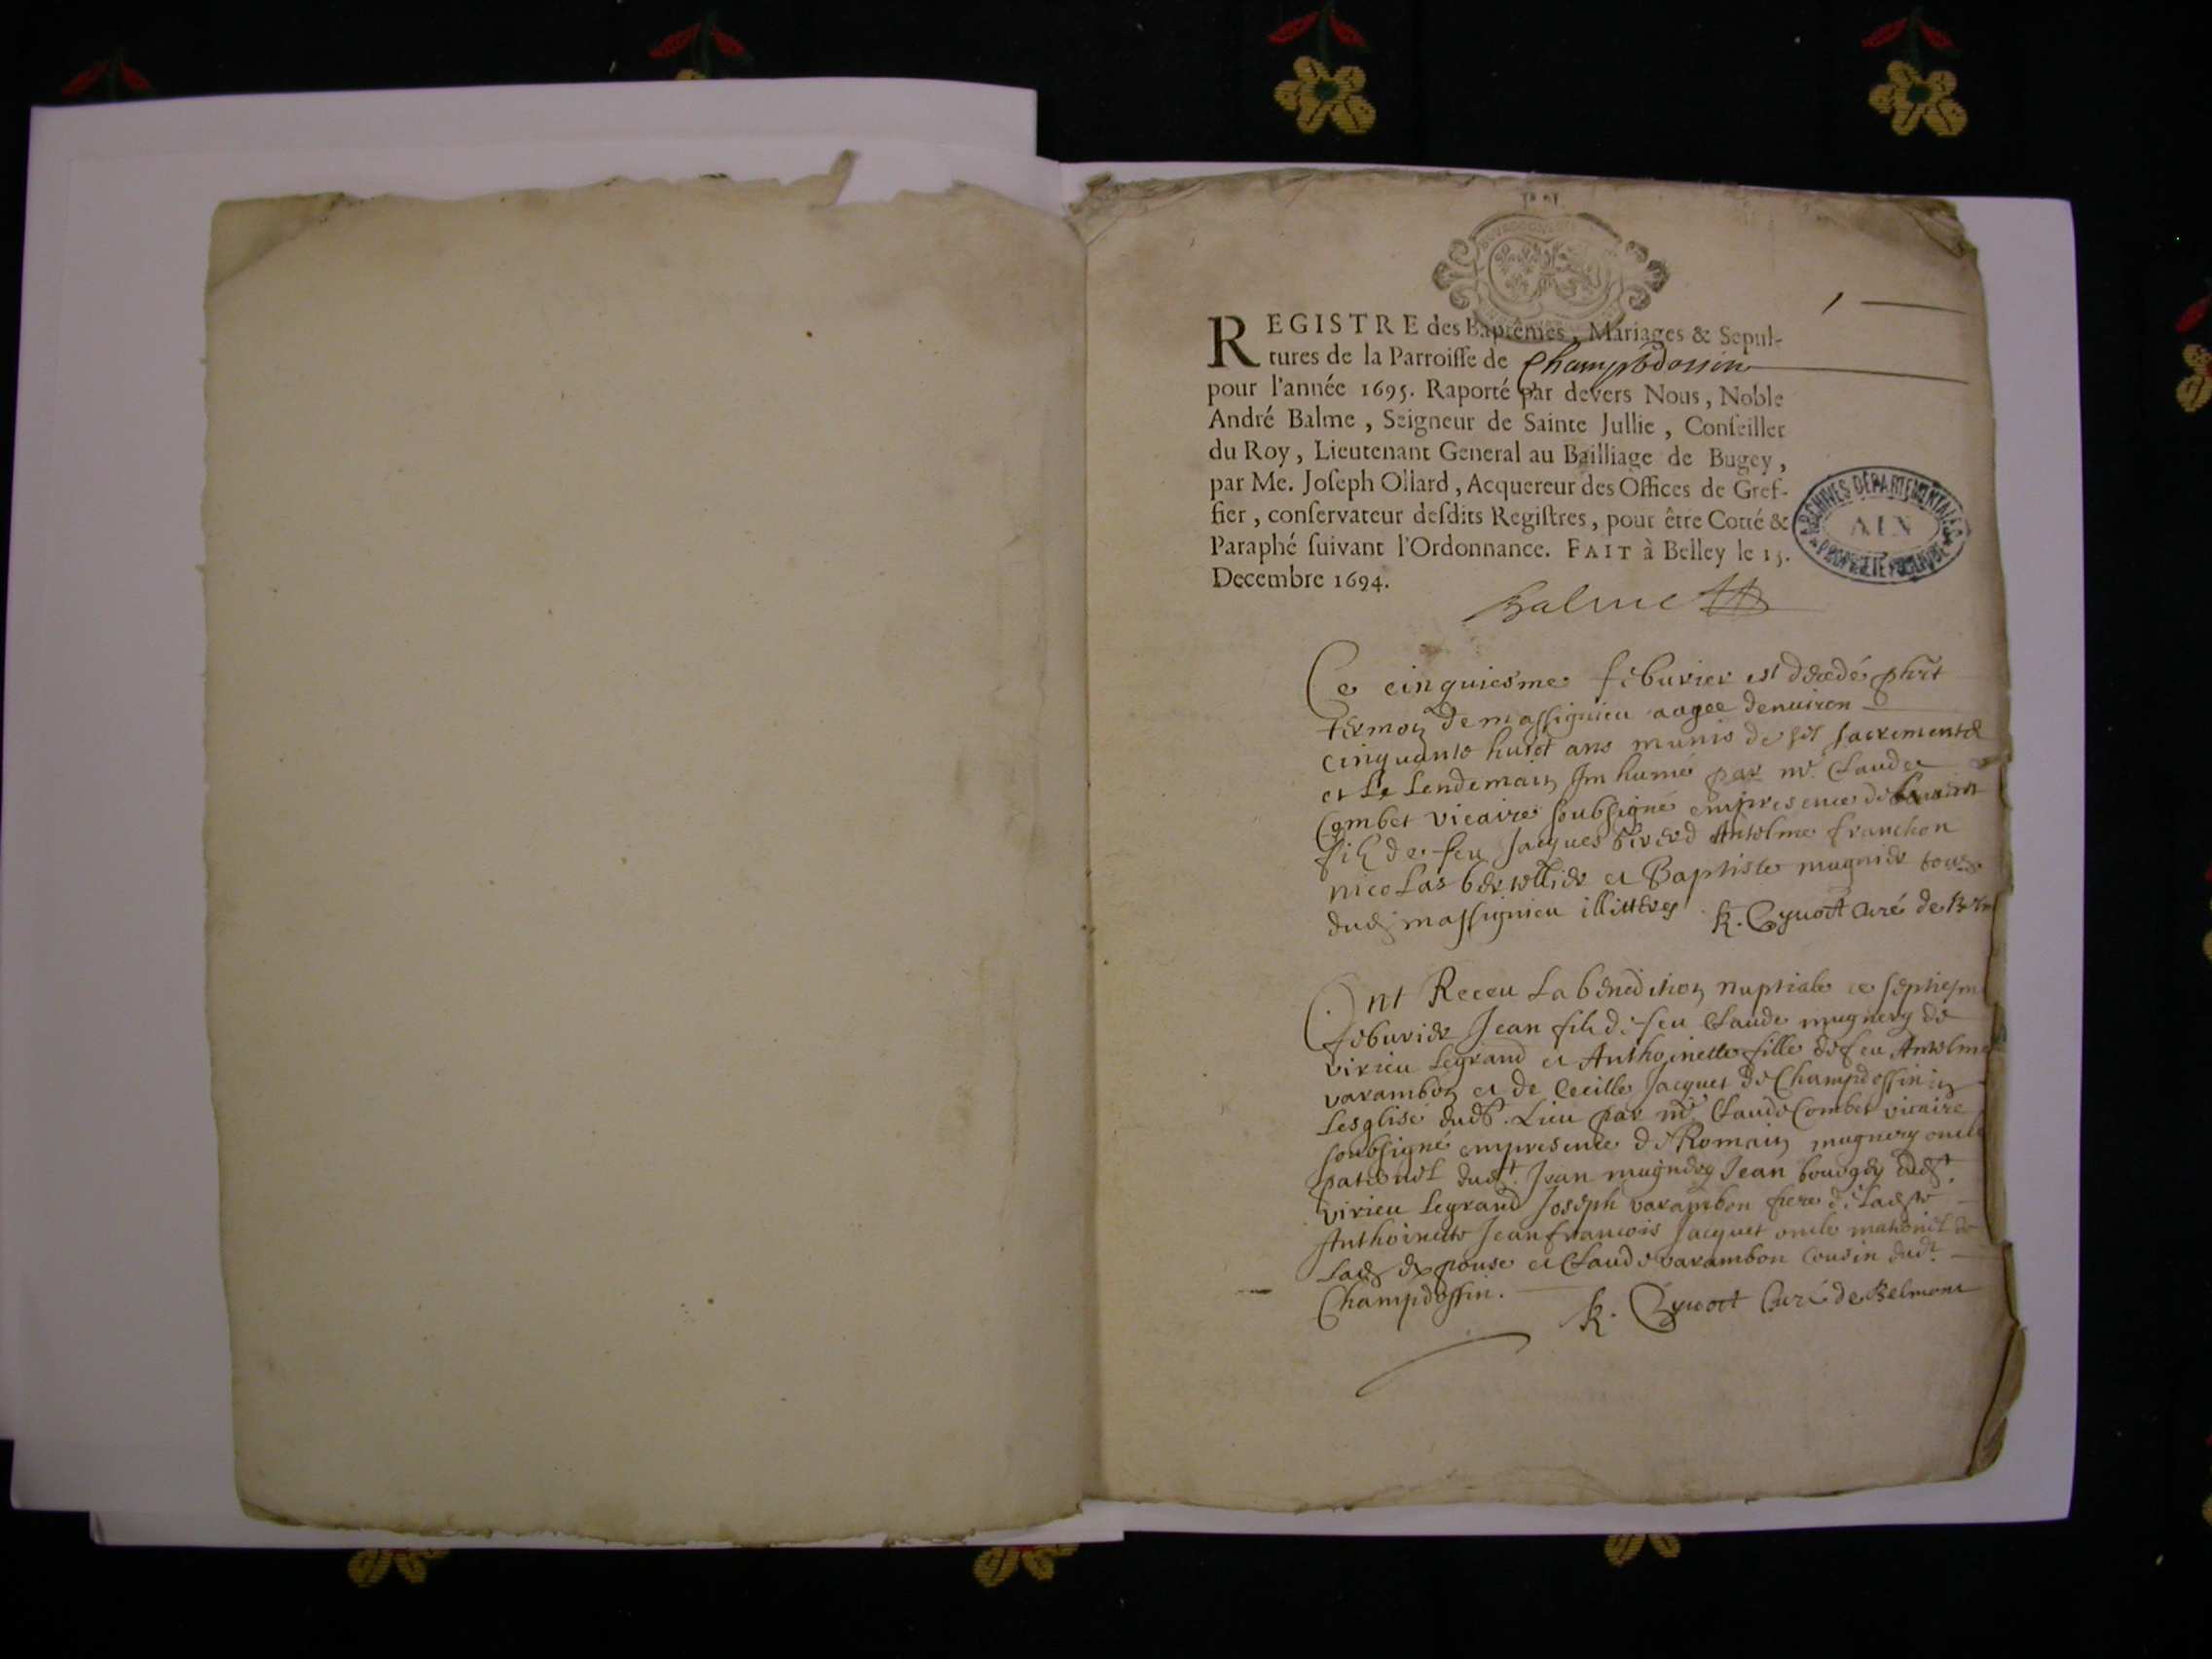 1
REGISTRE des Baptêmes, Mariages & Sepul-
tures de la Parroisse de Champdossin
pour l'année 1695. Raporté par devers Nous, Noble
André Balme, Seigneur de Sainte Jullie, Conseiller
du Roy, Lieutenant General au Bailliage de Bugey,
par Me. Joseph Ollard, Acquereur des Offices de Gref-
fier, conservateur desdits Registres, pour être Cotté &
Paraphé suivant l'Ordonnance. FAIT à Belley le 15.
Decembre 1694.
ARCHIVES DÉPARTEMENTALES
AIN
PROPRIÉTÉ PUBLIQUE
Balme
Ce cinquiesme feburier est decedé
de massignieu aagee denuiron
cinquante huict ans munis de sacrements
et le lendemain Inhumé par mr. Claude
Combet vicaire soubsigné empresence de
fils de feu Jacques Anthelme franchon
nicolas berthellier et Baptiste mugnier tous
dud massignieu illitteres K. Cynoct Curé de
Ont Receu la benediction nuptiale ce septiesm
feburier Jean fils de feu Claude mugnery de
virieu legrand et Anthoinette fille de feu Anthelme
varambon et de Cecille Jacquet de Champdossin en
lesglise dudt. Lieu par mr Claude Combet vicaire
soubsigné empresence de Romain mugnery oncle
paternel dudt. Jean mugnery Jean bourgey dudt.
virieu legrand Joseph varambon frere de ladte
Anthoinette Jean francois Jacquet oncle maternel de
lad expouse et Claude varambon cousin dudt.
Champdossin.
K. Cynoct Curé de Belmont